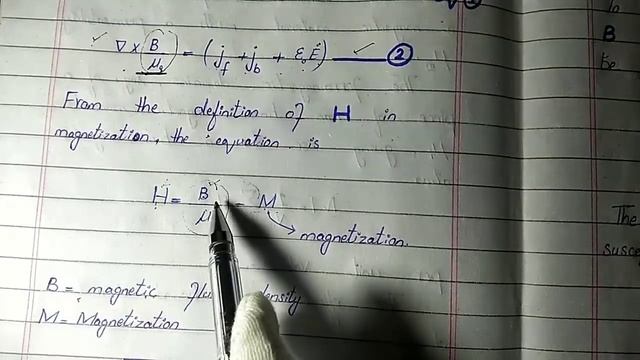 ∇ × B/μ₀ = (j_f + j_b + ε₀Ė) ——— ②
From the definition of H in
magnetization, the equation is
H = B/μ - M
magnetization.
B = magnetic density
M = Magnetization
B
be
The
susce